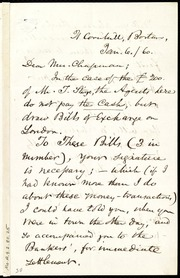 21 Cornhill, Boston,
Jan. 6. /60.
Dear Mrs. Chapman;
In the case of the £200.
of Mr. T. Sturge, the Agents here
do not pay the Cash, but
draw Bills of Exchange on
London.
To These Bills (3 in
number), your signature
is necessary; – which (if I
had known more than I do
about these money-transactions)
I could have told you, when you
were in town the other day, and
so accompanied you to the
Bankers', for immediate
settlement.